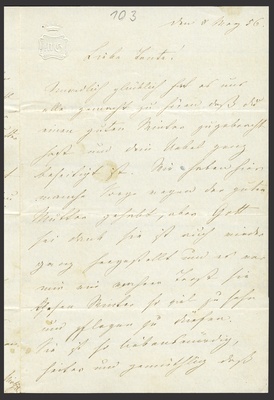 103
den 8 May 56.
Liebe Tante!
Unendlich glücklich hat es uns
alle gemacht zu hören daß du
einen guten Winter zugebracht
hast und dein Uebel ganz
beseitigt ist. Wir haben hier
manche Sorge wegen der guten
Mutter gehabt, aber Gott
sei dank sie ist auch wieder
ganz hergestellt und es war
mir ein wahrer Trost sie
diesen Winter so viel zu sehen
und pflegen zu dürfen.
Sie ist so liebenswürdig,
heiter und gemüthlich daß